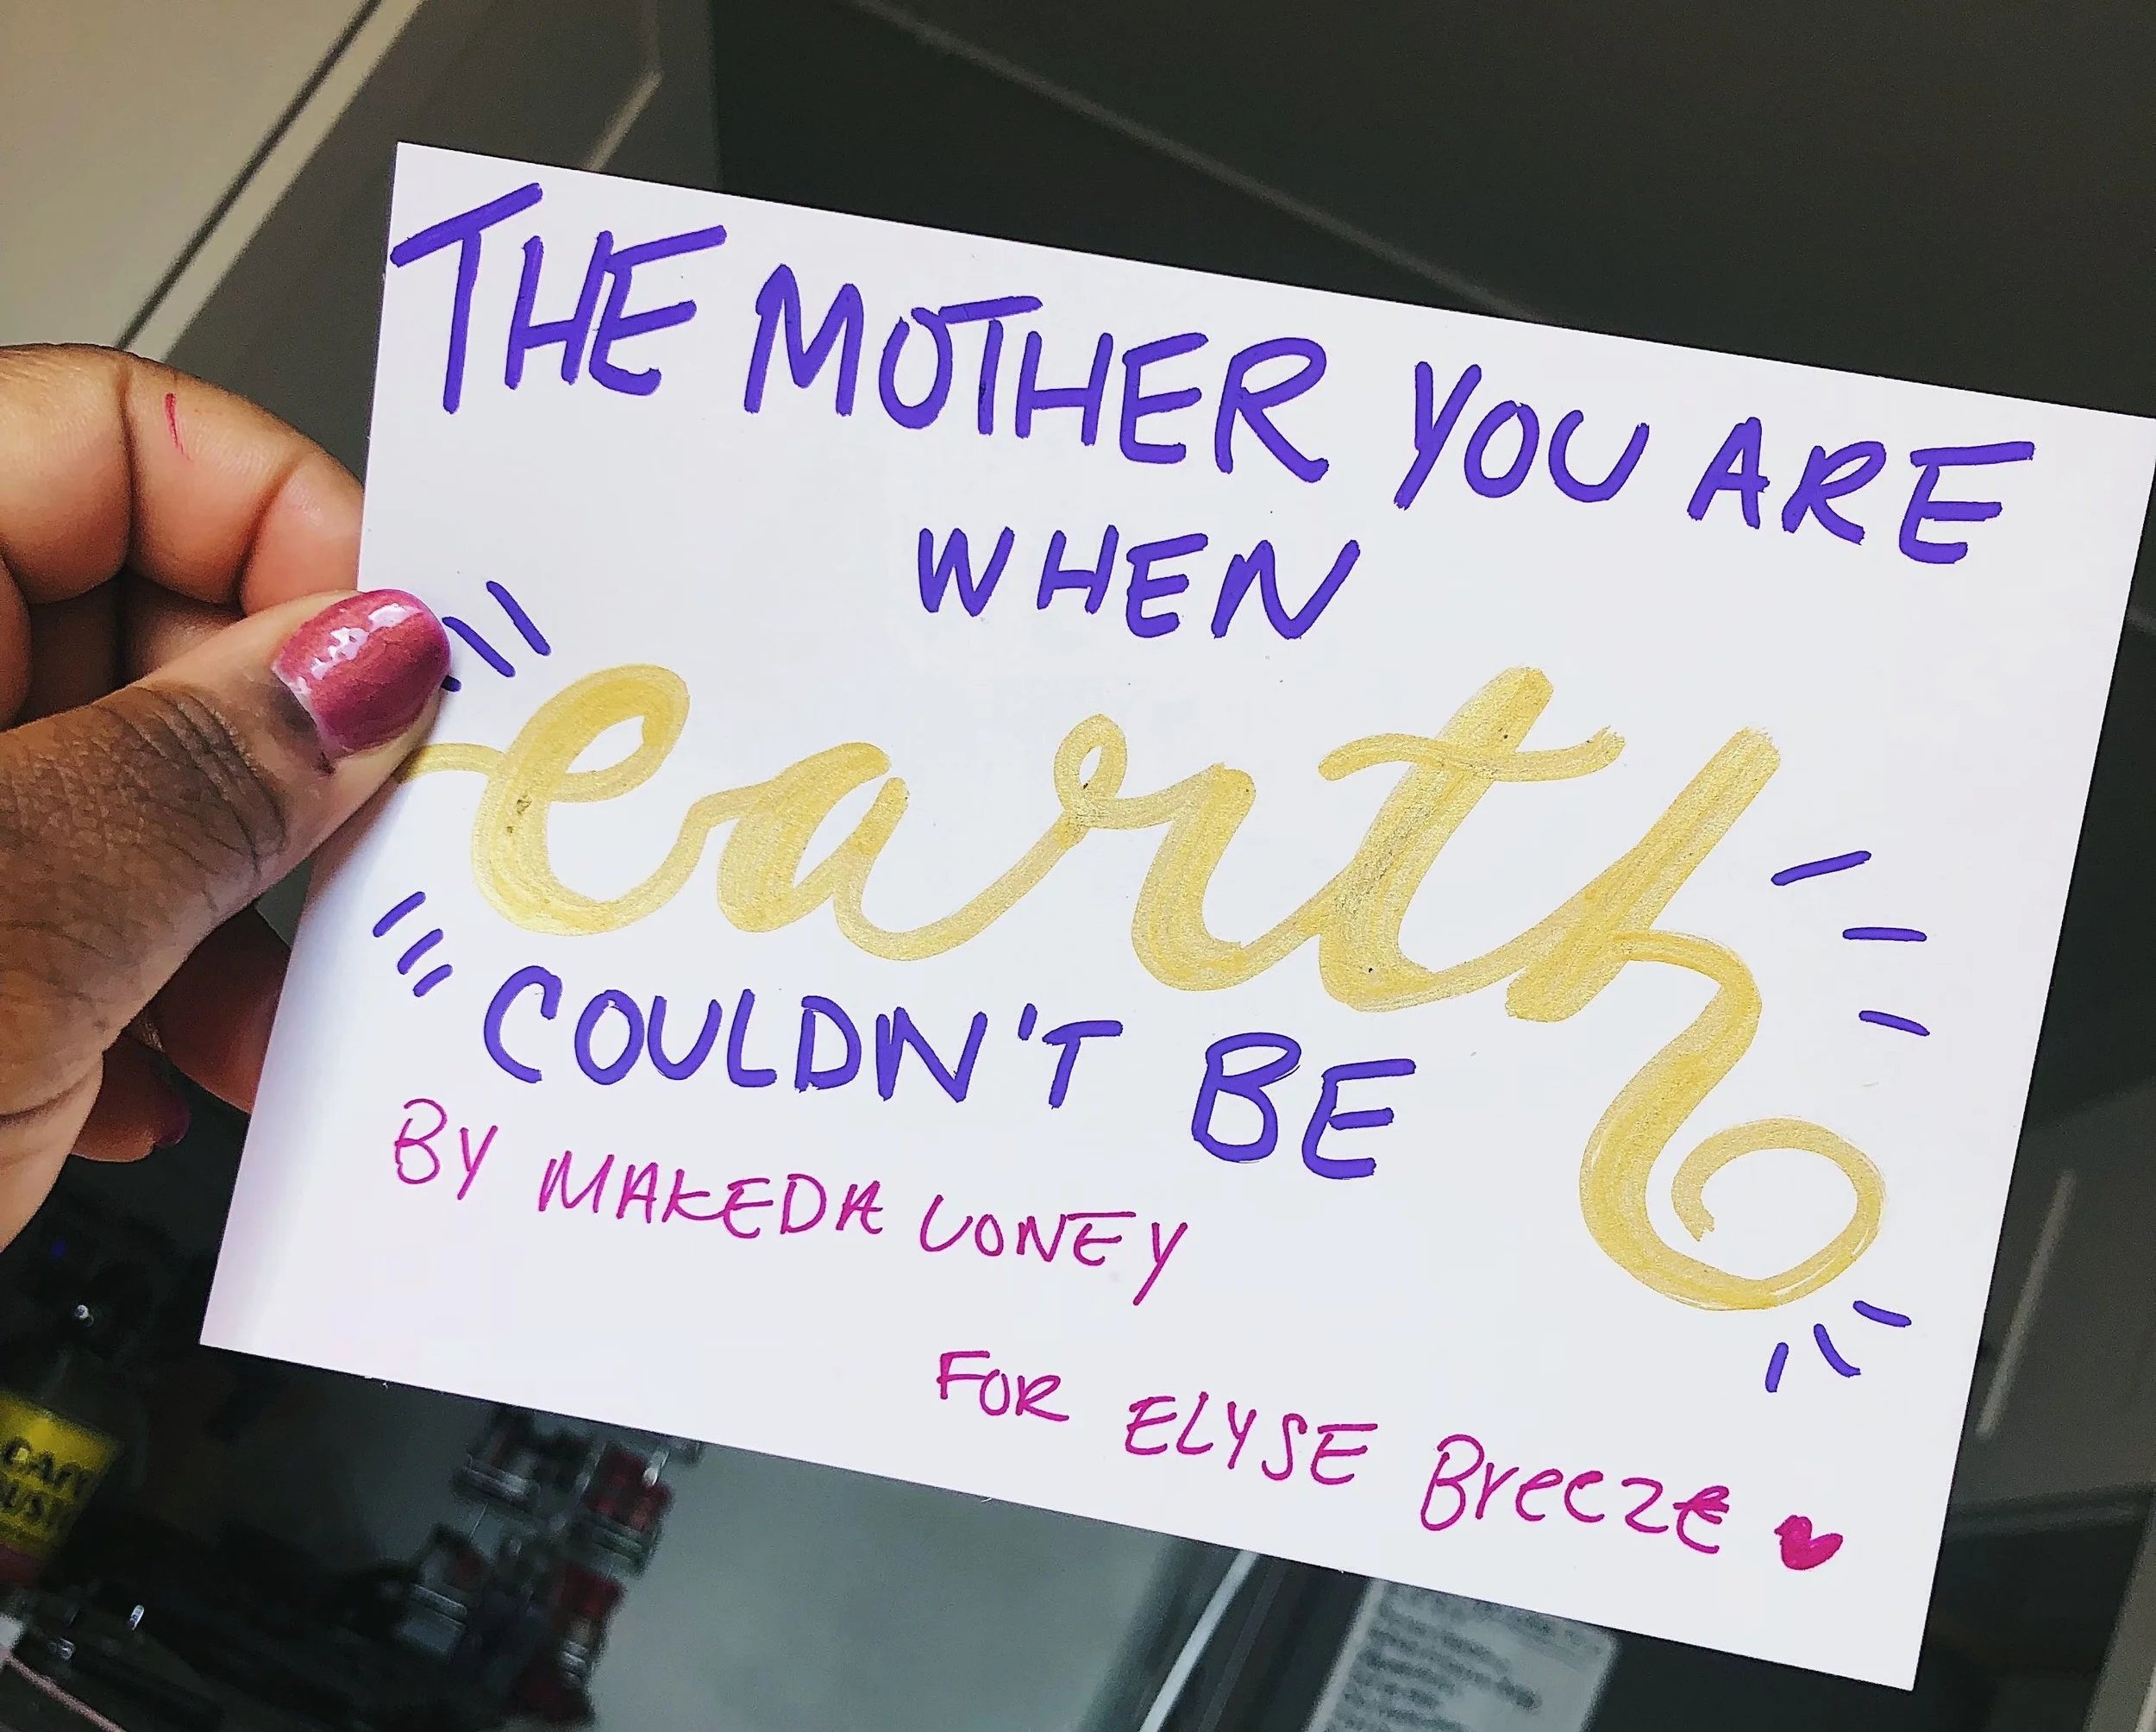 THE MOTHER YOU ARE
WHEN
earth
COULDN'T BE
BY MAKEDA LONEY
FOR ELYSE Breeze